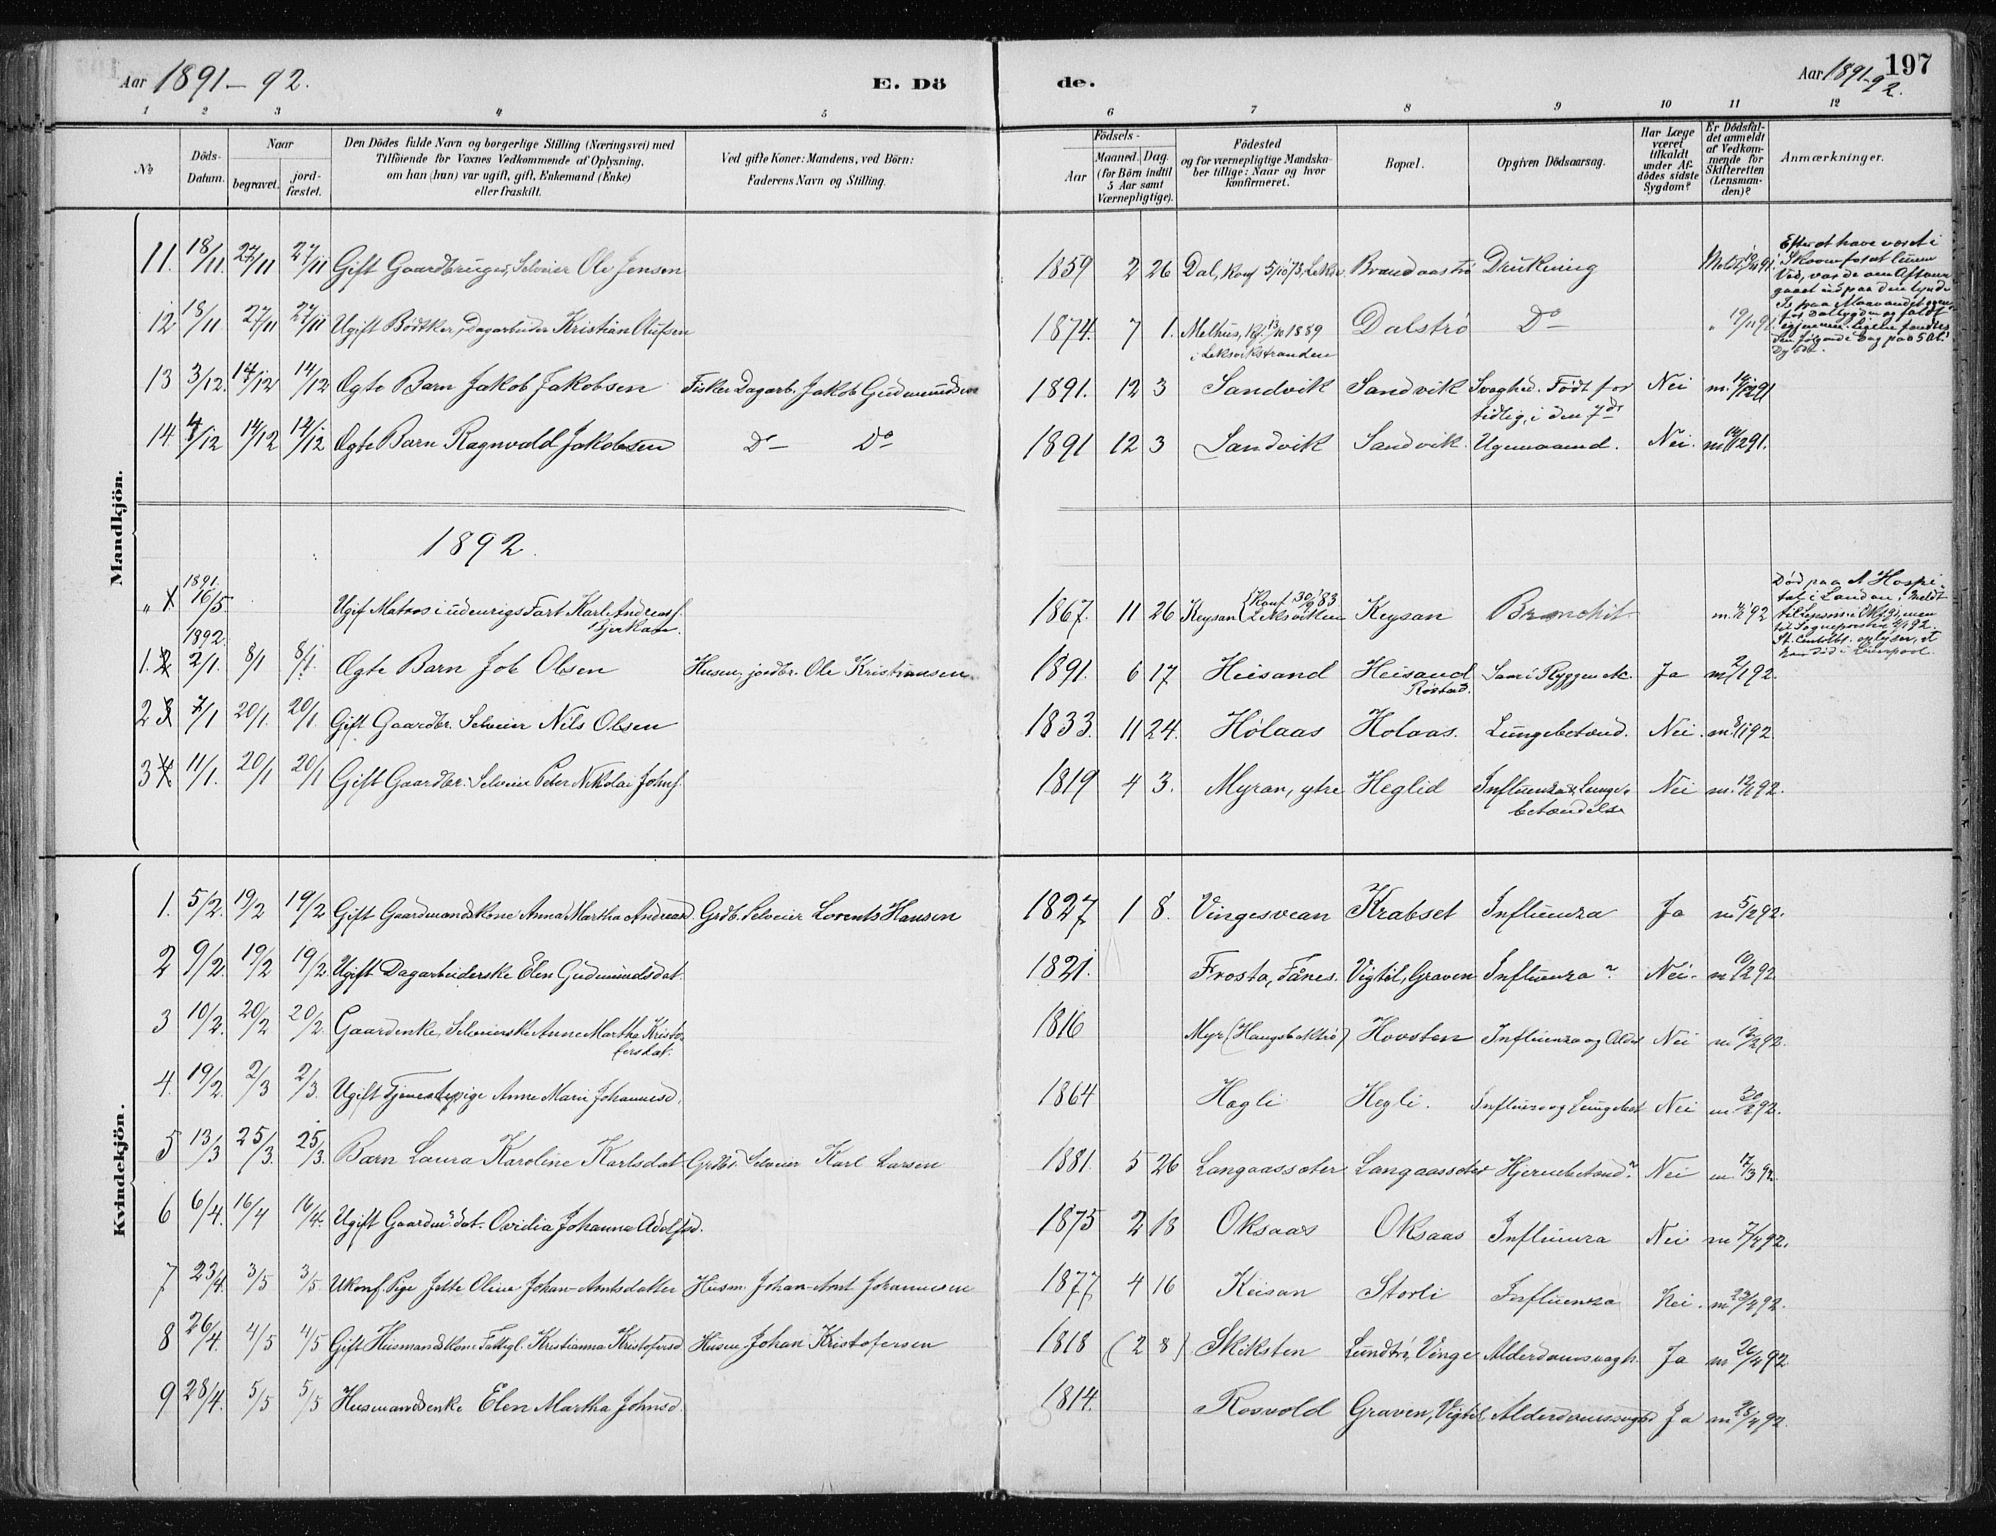 Aar 1891-92.
E. Dö
de.
Aar 1891-92.
197
1 2 3 4 5 6 7 8 9 10 11 12
№
Döds-Datum.
Naar
begravet.
jord-fæstet.
Den Dödes fulde Navn og borgerlige Stilling (Næringsvei) med
Tilföiende for Voxnes Vedkommende af Oplysning,
om han (hun) var ugift, gift, Enkemand (Enke)
eller fraskilt.
Ved gifte Koner: Mandens, ved Börn:
Faderens Navn og Stilling.
Födsels-
Aar
Maaned. Dag.
(for Börn indtil
5 Aar samt
Værnepligtige).
Födested
og for værnepligtige Mandska-
ber tillige: Naar og hvor
konfirmeret.
Bopæl.
Opgiven Dödsaarsag.
Har Læge
været
tilkaldt
under Af-
dödes sidste
Sygdom?
Er Dödsfal-
det anmeldt
af Vedkom-
mende for
Skifteretten
(Lensman-
den)?
Anmærkninger.
Mandkjön.
11. 18/11 27/11 27/11 Gift Gaardbruger, Selveier Ole Jensen 1859 2 26 Dal, konf 5/10 73, Leksv. Brandaastrø Drukning
Efter at have været i
12 18/11 27/11 27/11 Ugift Bødtker, Dagarbeider Kristian Olufsen 1874. 7 1. Melhus, 1889 Dalstrø Do 19/11 91
i Leksvikstranden
13 3/12. 14/12 14/12 Ægte Barn Jakob Jakobsen Fisker Dagarb. Jakob Gudmundsen 1891. 12 3 Sandvik Sandvik Svaghed. Født for Nei m. 14/12 91
tidlig, i den 7de
14 4/12 14/12 14/12 Ægte Barn Ragnvald Jakobsen Do Do 1891 12 3 Sandvik Sandvik. Ugemaaned. Nei. m 14/12 91.
1892.
1891.
16/5 Ugift Matros i udenrigs Fart Karl Andreas Bjerkaas. 1867. 11 26 Keysan Keysan Bronchit m. 92
Død paa et Hospi-
tal i London. Meldt
1892.
1. 2/1. 8/1 8/1. Ægte Barn Job Olsen Husm, jordbr. Ole Kristiansen 1891. 6 17 Heisand Heisand Saar i Ryggen etc. Ja m 2/1 92.
Røstad.
2 7/1 20/1. 20/1. Gift Gaardbr. Selveier Nils Olsen 1833. 11 24. Hølaas Holaas. Lungebetænd. Nei. m. 8/1 92
3 11/1. 20/1 20/1 Gift Gaardbr. Selveier Peter Nikolai Johns. 1819 4 3. Myran, ytre Heglid Influenza, Lunge- Nei m. 12/1 92.
betændelse
Kvindekjön.
1. 5/2. 19/2 19/2 Gift Gaardmandskone Anna Martha Andreasd. Grdb. Selveier Lorents Hansen 1827 1 8. Vingesvean Krabset Influenza Ja m 5/2 92.
2 9/2. 19/2 19/2. Ugift Dagarbeiderske Elen Gudmundsdat. 1821. Frosta, Fånes. Vigtil, Graven Influenza Nei. m 10/2 92
3 10/2. 20/2 20/2. Gaardenke, Selveierske Anne Martha Kristo- 1816 Myr (Haugsbaktrø) Hovsten Influenza og Alder Nei m 13/2 92.
fersdat.
4. 19/2. 2/3 2/3. Ugift Tjenestepige Anne Marie Johannesd. 1864 Hægli Hegli. Influenza og Lungebet Nei m. 20/2 92.
5 13/3 25/3. 25/3. Barn Laura Karoline Karlsdat Grdbr. Selveier Karl Larsen 1881. 5 26 Langaassæter Langaassæter Hjernebetænd. Nei m. 17/3 92.
6 6/4. 16/4 16/4. Ugift Gaardm. dat. Ovidia Johanna Adolfsd. 1875 2 18 Oksaas Oksaas Influenza Nei m 7/4 92.
7 23/4 3/5 3/5. Ukonf. Pige Jette Oline Johan-Arntsdatter Husm. Johan-Arnt Johannesen 1877. 4 16 Keisan Storli Influenza Nei. m 23/4 92.
8 26/4. 4/5 4/5 Gift Husmandskone Fattigl. Kristianna Kristofersd. Husm. Johan Kristofersen 1818 (2 8) Skiksten Lundtrø, Vinge Alderdomssvagh. Ja m 26/4 92
9 28/4. 5/5 5/5 Husmandsenke Elen Martha Johnsd. 1814. Rosvold Graven, Vigtil, Alderdomssvaghed Ja m 28/4 92.